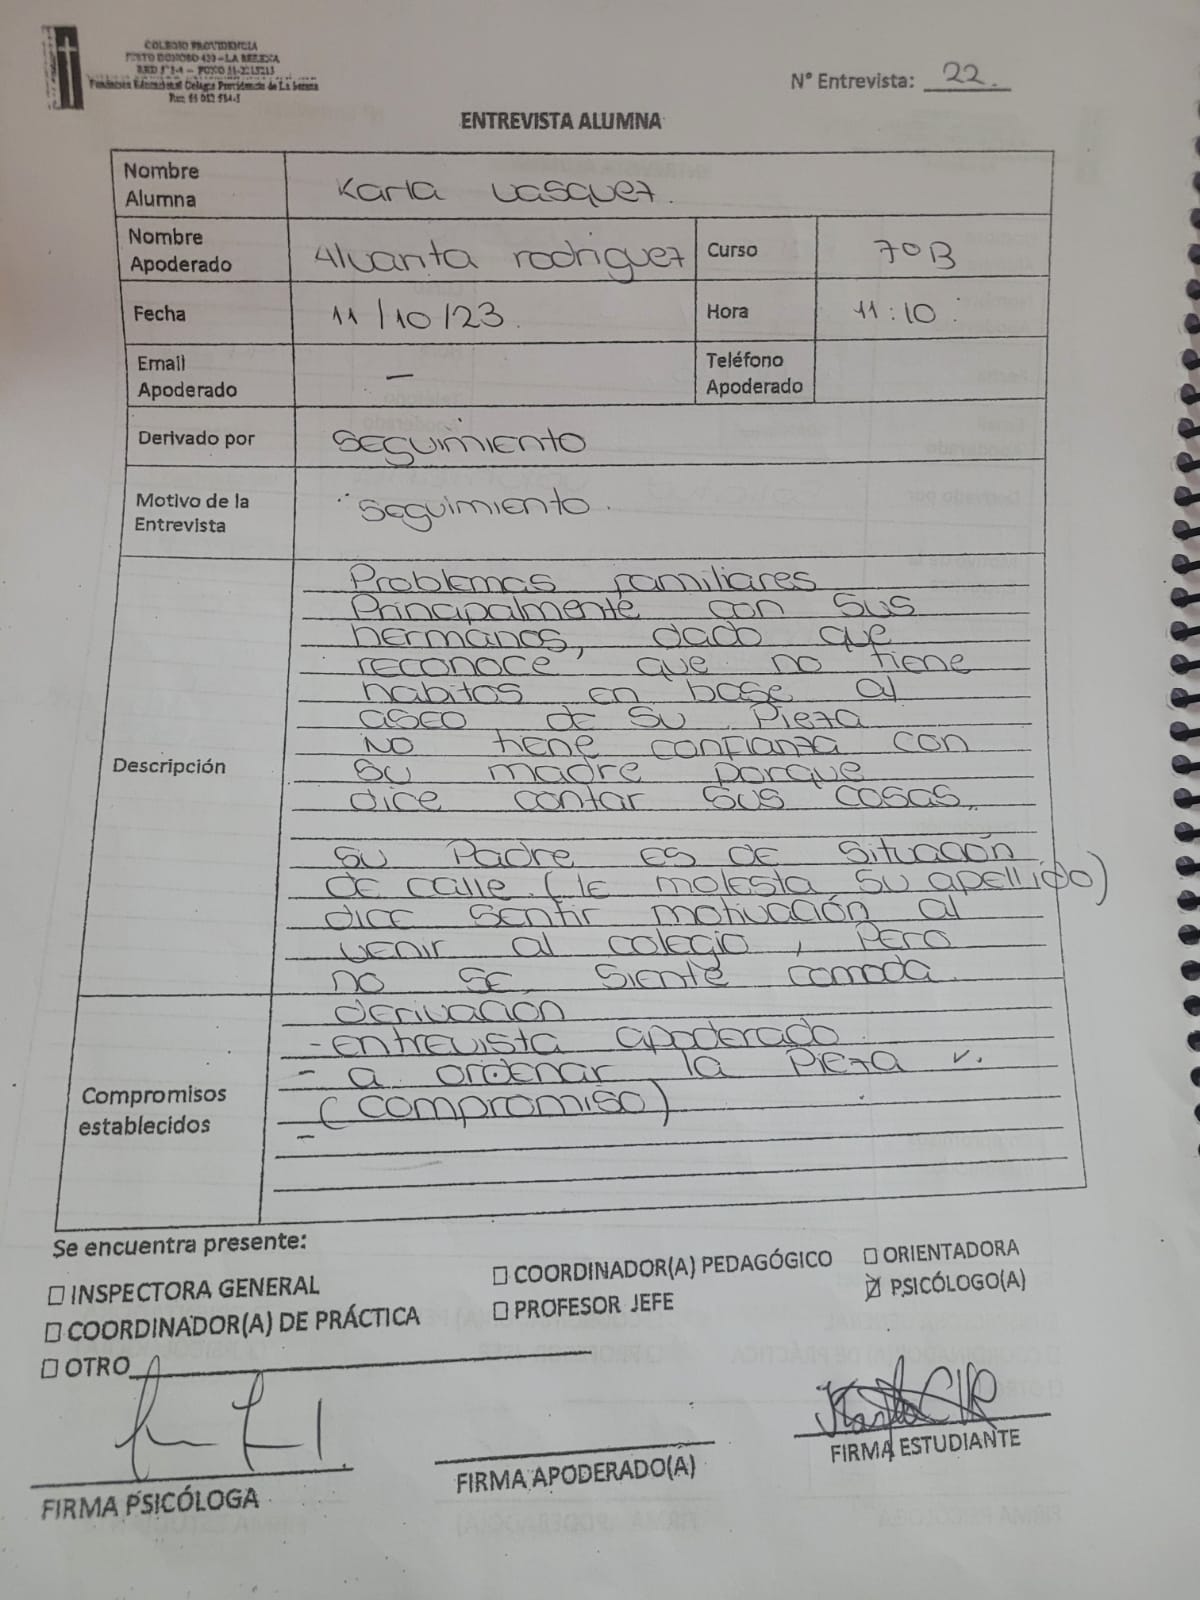 COLEGIO PROVIDENCIA
JUSTO DONOSO 420 - LA SERENA
RBD 534-4 - FONO 51-2215213
Fundación Educacional Colegio Providencia de La Serena
N° Entrevista: 22.
ENTREVISTA ALUMNA
Nombre Alumna Karla Vasquez.
Nombre Apoderado Alvanta rodriguez Curso 7°B
Fecha 11/10/23. Hora 11:10
Email Apoderado — Teléfono Apoderado
Derivado por seguimiento
Motivo de la Entrevista seguimiento.
Descripción
Problemas familiares
Principalmente con sus
hermanos, dado que
reconoce que no tiene
habitos en base al
aseo de su Pieza
No tiene confianza con
su madre porque
dice contar sus cosas.
su Padre es de situación
de calle. (le molesta su apellido)
dice sentir motivación al
venir al colegio, pero
no se siente comoda.
Compromisos establecidos
derivacion
- entrevista apoderado.
- a ordenar la Pieza v.
(compromiso)
-
Se encuentra presente:
☐ INSPECTORA GENERAL ☐ COORDINADOR(A) PEDAGÓGICO ☐ ORIENTADORA
☐ COORDINADOR(A) DE PRÁCTICA ☐ PROFESOR JEFE ☒ PSICÓLOGO(A)
☐ OTRO
FIRMA PSICÓLOGA FIRMA APODERADO(A) FIRMA ESTUDIANTE